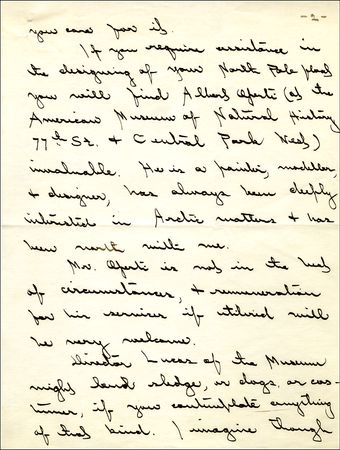 - 2 -
you care for it.
If you require assistance in
the designing of your North Pole place
you will find Albert Operti (at the
American Museum of Natural History
77th St. & Central Park West)
invaluable. He is a painter, modeller,
& designer, has always been deeply
interested in Arctic matters & has
been north with me.
Mr. Operti is not in the best
of circumstances, & remuneration
for his services if utilized will
be very welcome.
Director Lucas of the Museum
might lend sledge, or dogs, or cos-
tumes, if you contemplate anything
of that kind. I imagine though